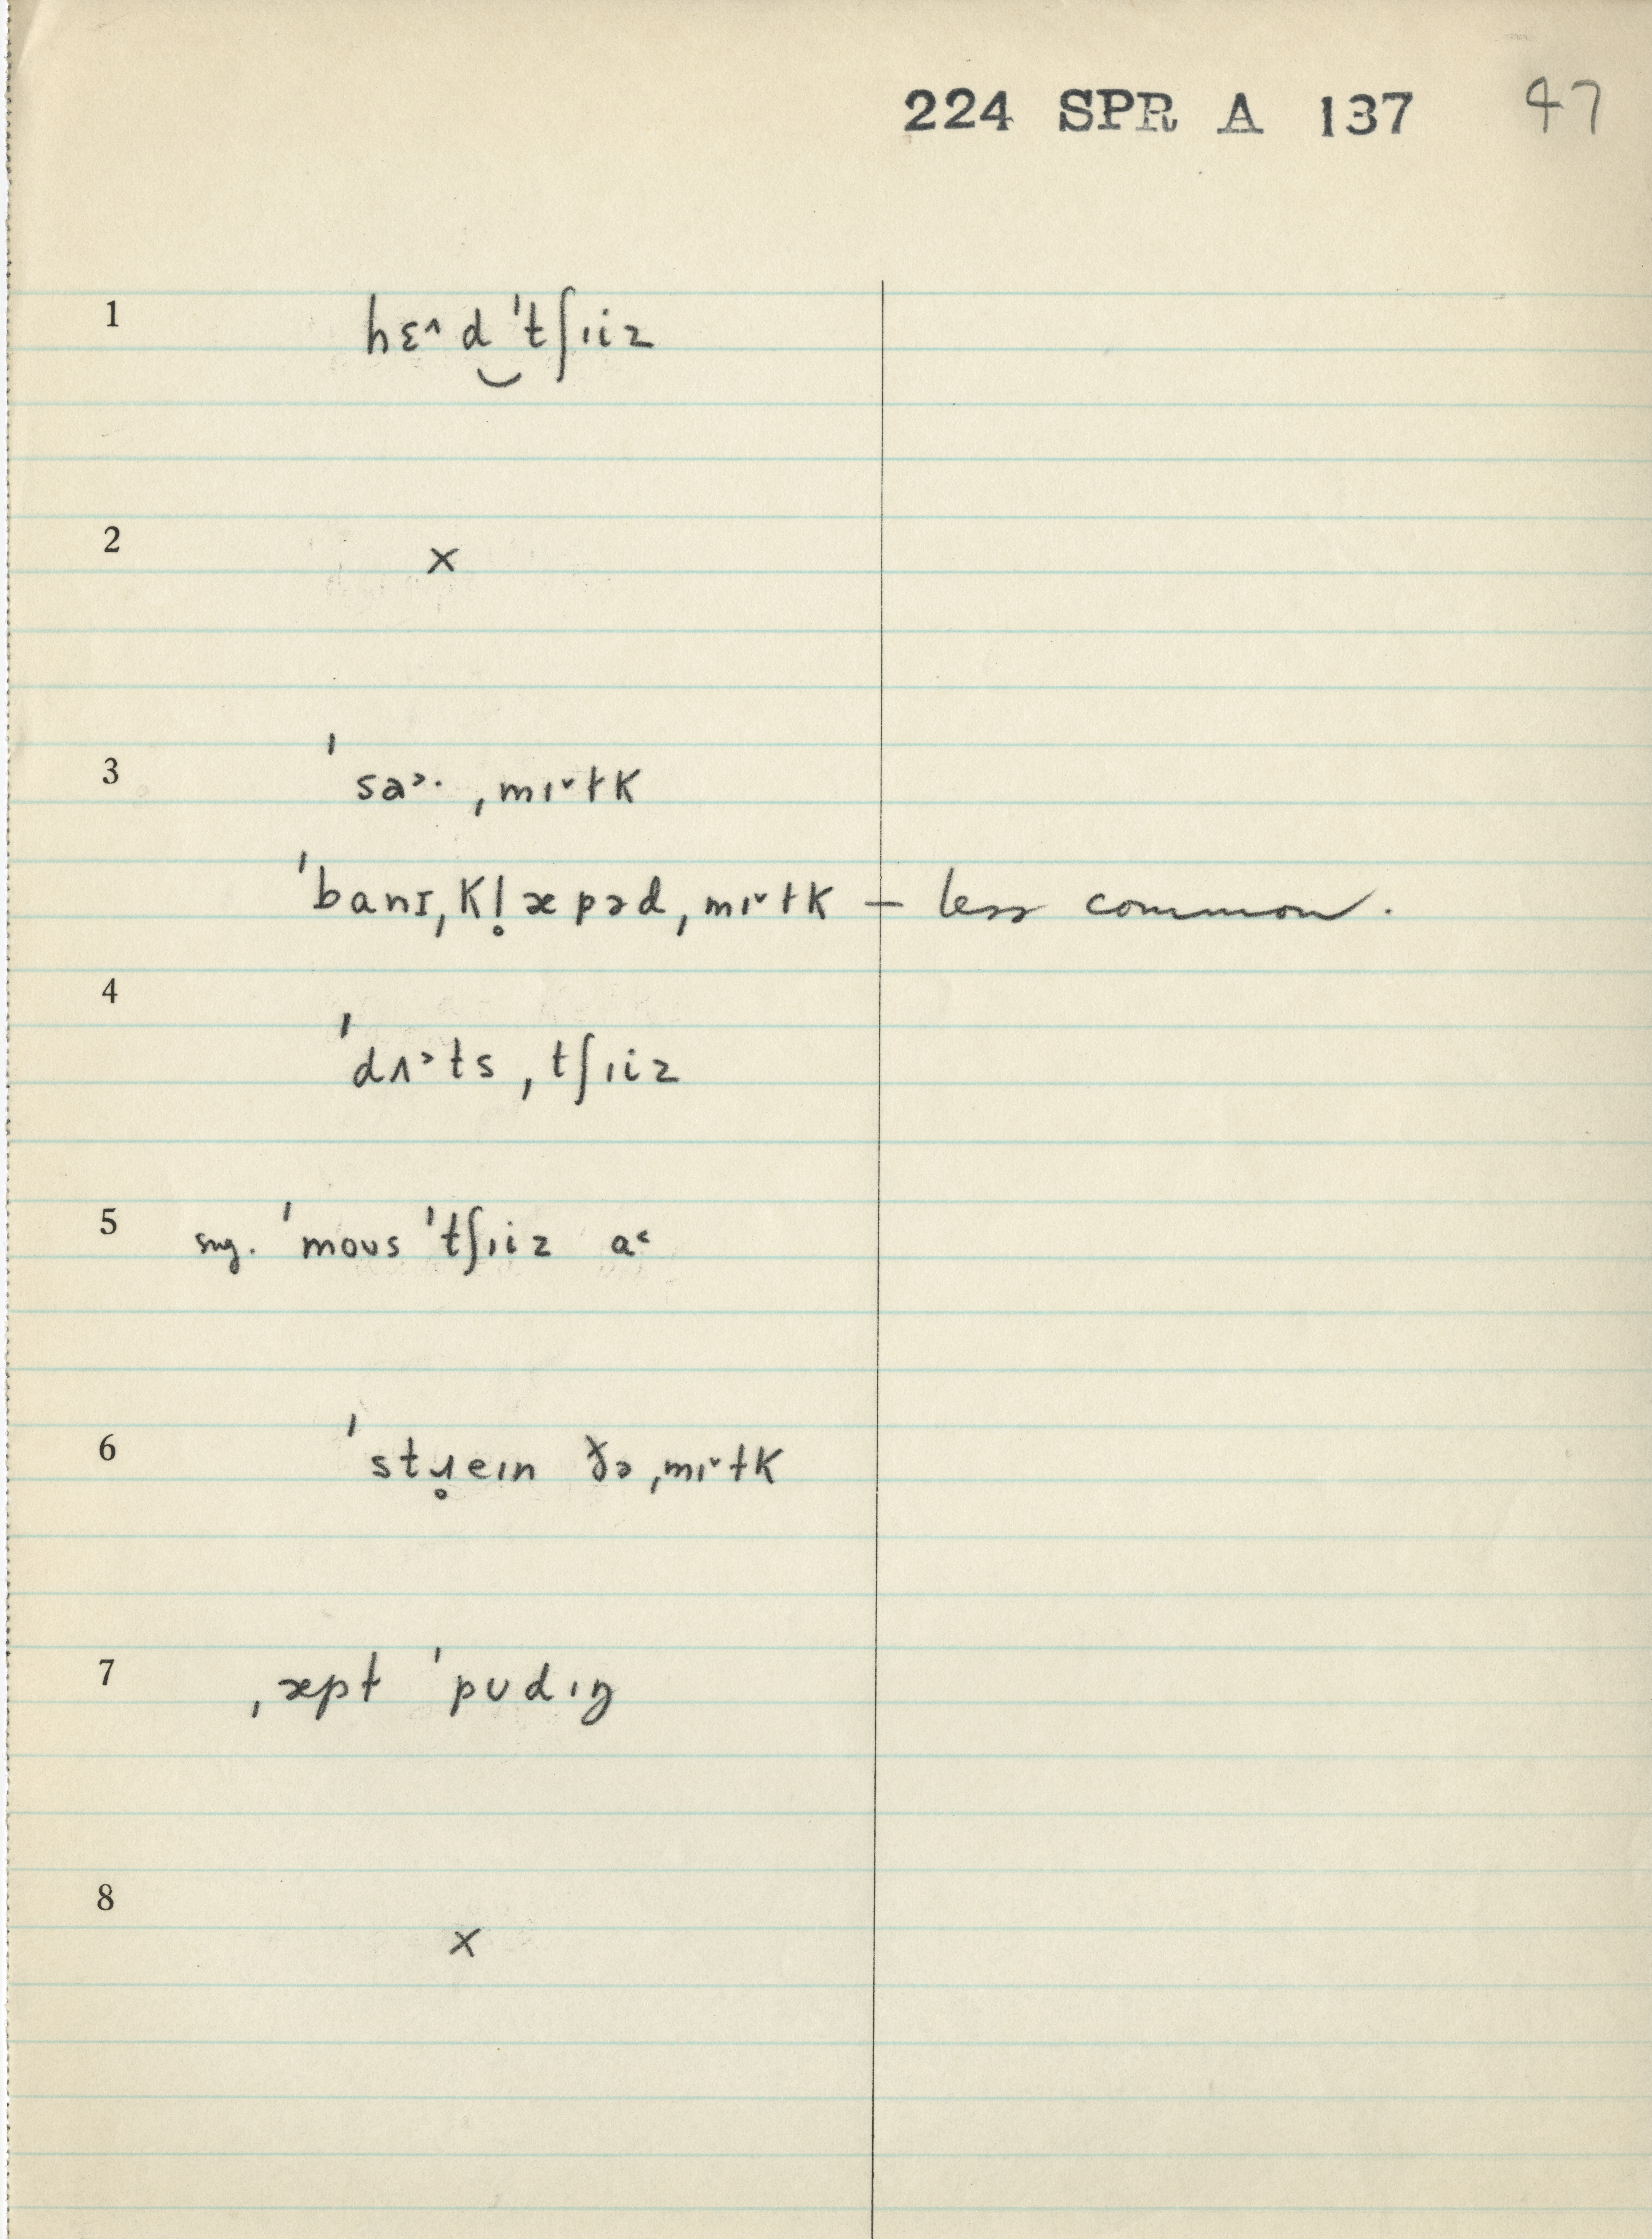 224 SPR A 137 47
1 hɛ˄d‿ˈtʃɪiz
2 ×
3 ˈsa˃· ˌmɪ˅ɫk
ˈbanɪˌkl̥æpəd ˌmɪ˅ɫk – less common.
4 ˈdʌ˃ts ˌtʃɪiz
5 sng. ˈmoʊs ˈtʃɪiz a˂
6 ˈstɹ̥eɪn ðə ˌmɪ˅ɫk
7 ˌæpɫ ˈpʊdɪŋ
8 ×